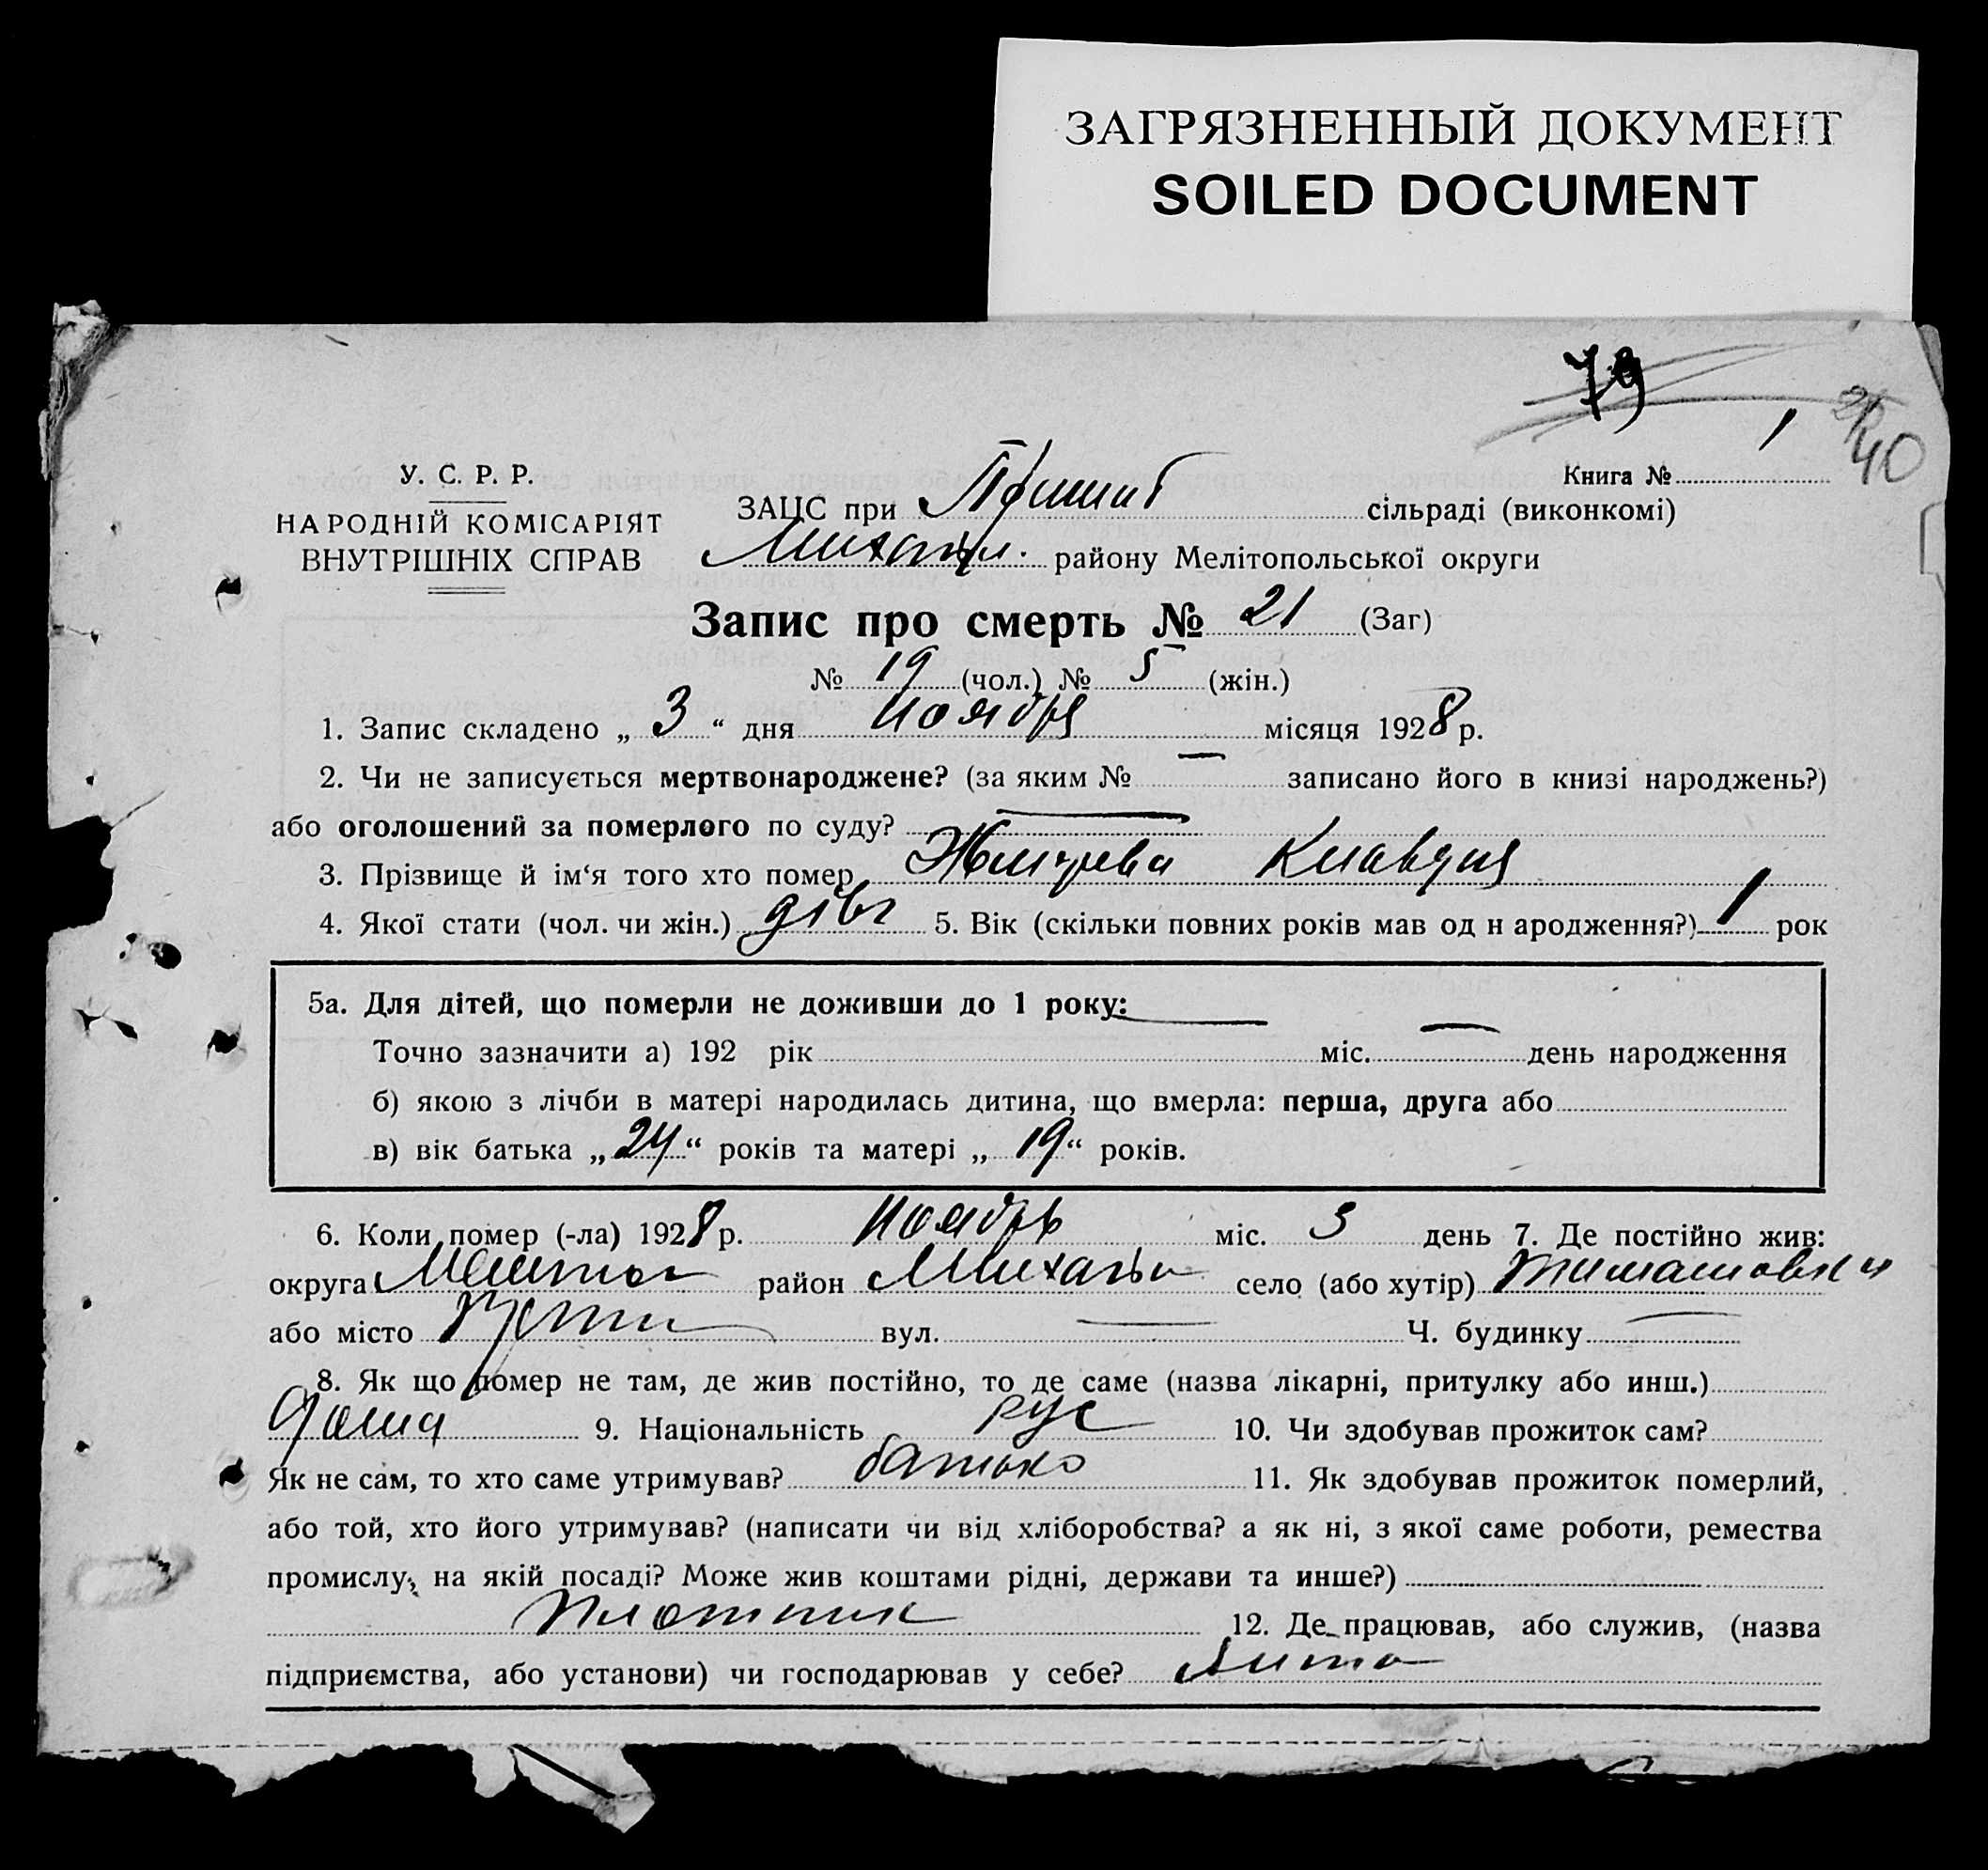 ЗАГРЯЗНЕННЫЙ ДОКУМЕНТ
SOILED DOCUMENT
79
40
У. С. Р. Р.
НАРОДНІЙ КОМІСАРІЯТ
ВНУТРІШНІХ СПРАВ
Книга № 1
ЗАЦС при Пришиб сільраді (виконкомі)
Михайл. району Мелітопольської округи
Запис про смерть № 21 (Заг)
№ 19 (чол.) № 5 (жін.)
1. Запис складено „ 3 “ дня ноября місяця 1928 р.
2. Чи не записується мертвонароджене? (за яким № — записано його в книзі народжень?)
або оголошений за померлого по суду? —
3. Прізвище й ім‘я того хто помер Клавдия
4. Якої стати (чол. чи жін.) 5. Вік (скільки повних років мав од н ародження?) 1 рок
5а. Для дітей, що померли не доживши до 1 року: —
Точно зазначити а) 192 рік міс. — день народження
б) якою з лічби в матері народилась дитина, що вмерла: перша, друга або
в) вік батька „ 24 “ років та матері „ 19 “ років.
6. Коли помер (-ла) 1928 р. ноябрь міс. 3 день 7. Де постійно жив:
округа Мелитоп район Михайл село (або хутір) Тимашовки
або місто вул. — Ч. будинку —
8. Як що помер не там, де жив постійно, то де саме (назва лікарні, притулку або инш.)
дома 9. Національність рус 10. Чи здобував прожиток сам?
Як не сам, то хто саме утримував? батько 11. Як здобував прожиток померлий,
або той, хто його утримував? (написати чи від хліборобства? а як ні, з якої саме роботи, ремества
промислу, на якій посаді? Може жив коштами рідні, держави та инше?)
плотник 12. Де працював, або служив, (назва
підприємства, або установи) чи господарював у себе?